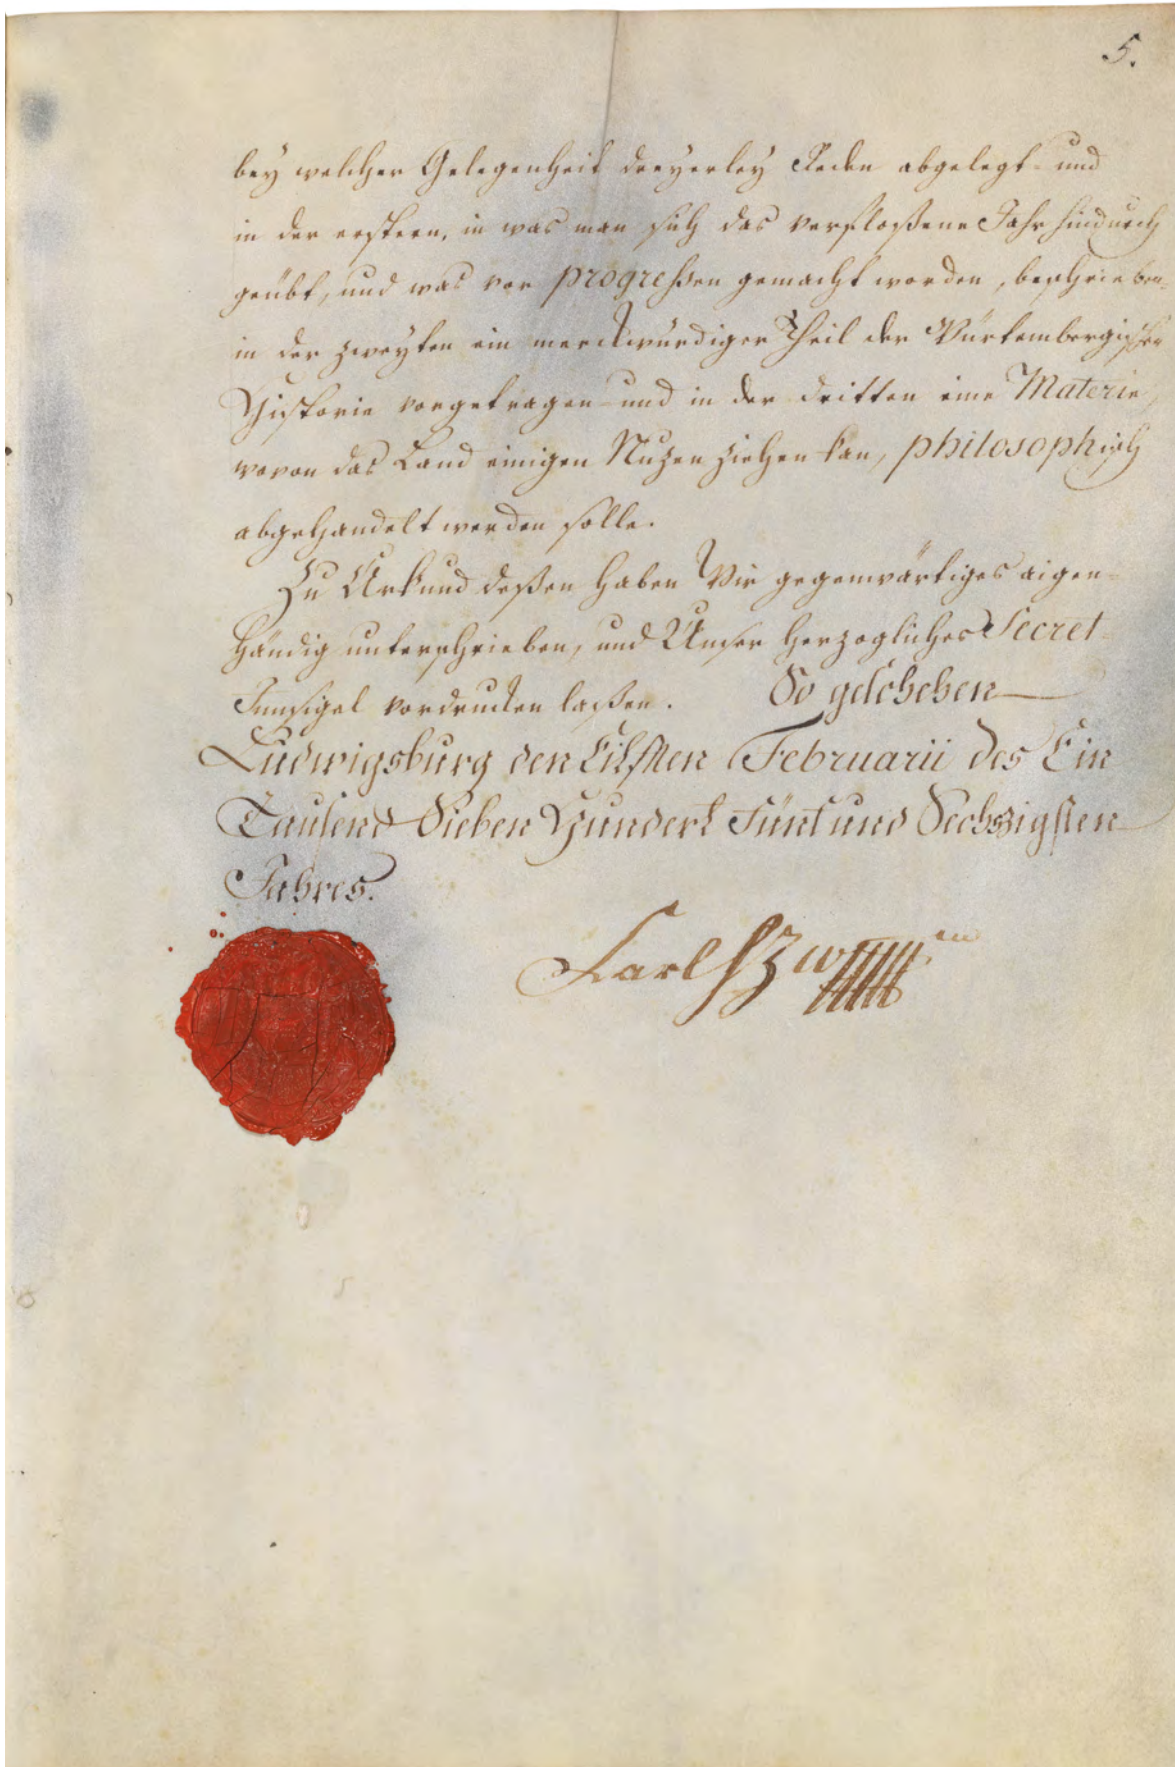 5.
bey welcher Gelegenheit dreyerley Reden abgelegt- und
in der erstern, in was man sich das verfloßene Jahr hindurch
geübt, und was vor progreßen gemacht worden, beschrieben-
in der zweyten ein merckwürdiger Theil der Würtembergischen
Historie vorgetragen- und in der dritten eine Materie,
wovon das Land einigen Nuzen ziehen kan, philosophisch
abgehandelt werden solle.
Zu Urkund deßen haben Wir gegenwärtiges aigen-
händig unterschrieben, und Unser Herzogliches Secret-
Innsigel vordrucken laßen. So geschehen
Ludwigsburg den Eilften Februarii des Ein
Tausend Sieben Hundert Fünf und Sechszigsten
Jahres.
Carl HZW